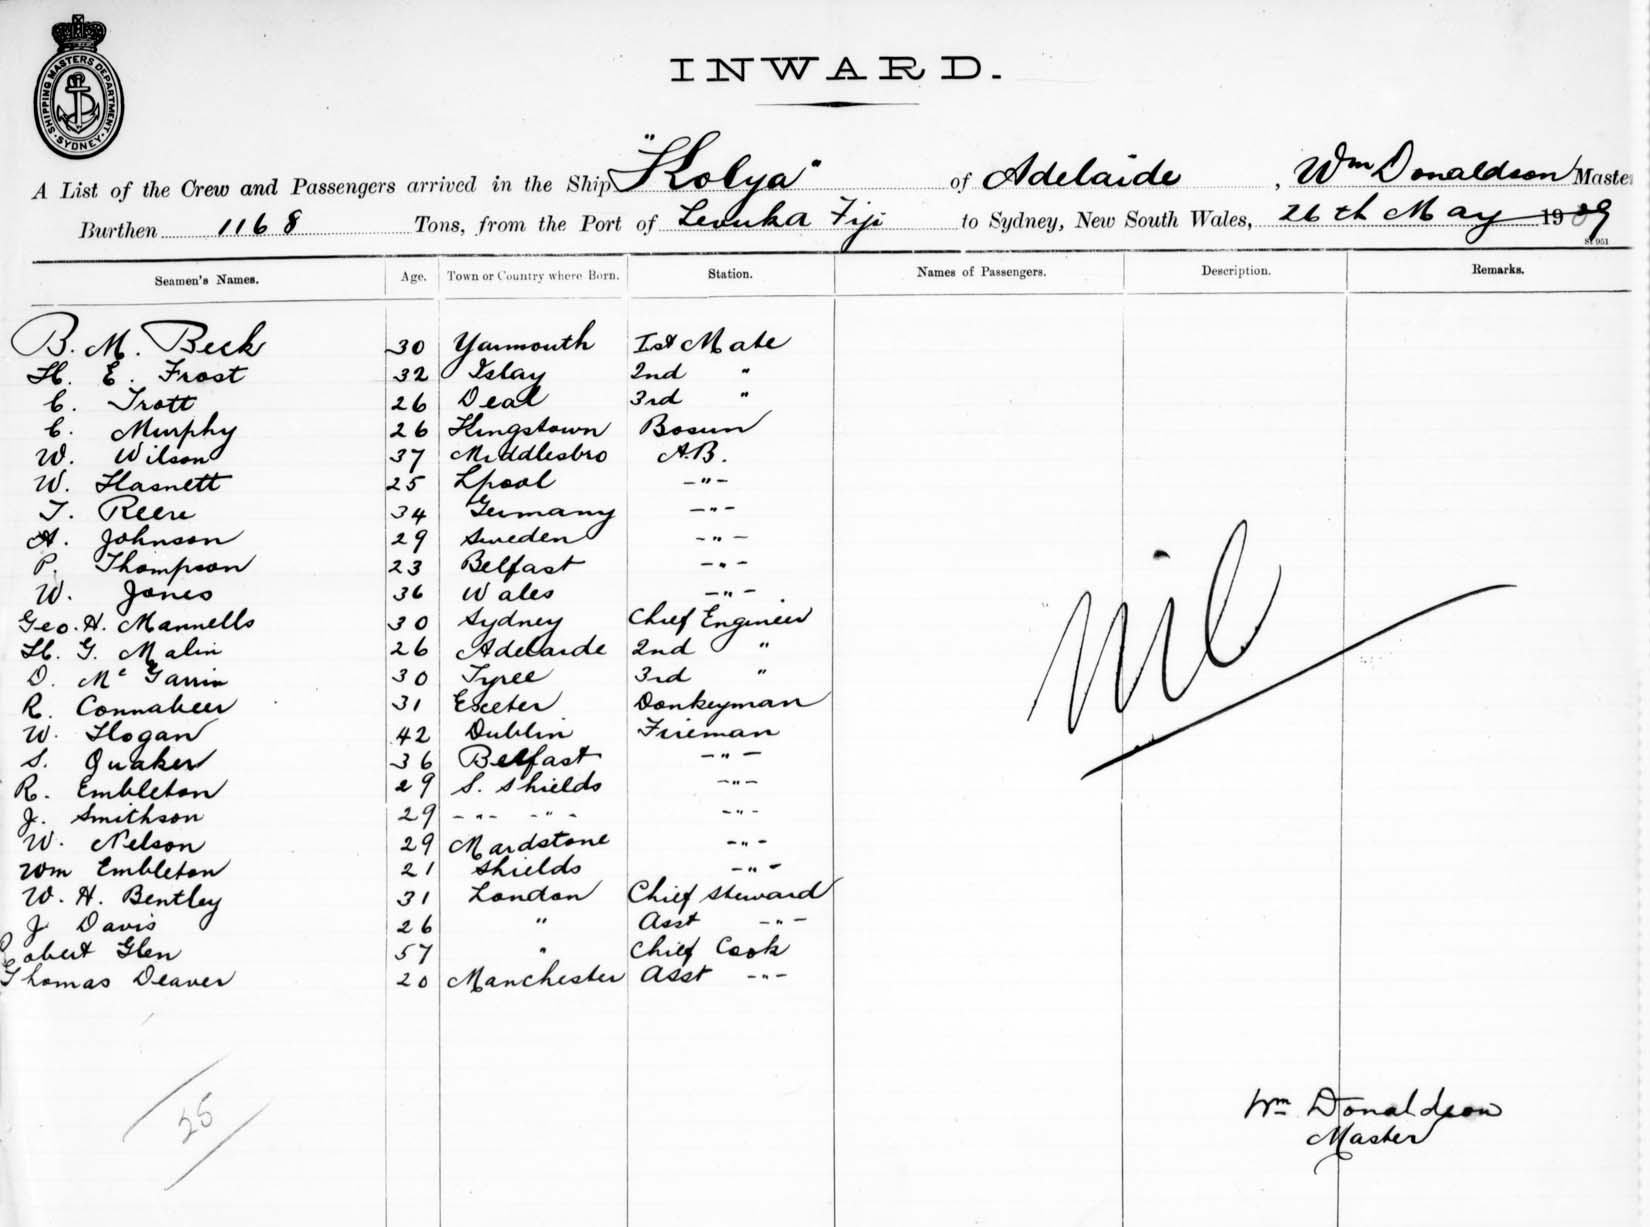 SHIPPING MASTERS DEPARTMENT. SYDNEY.
INWARD.
A List of the Crew and Passengers arrived in the Ship "Kolya" of Adelaide, Wm Donaldson Master
Burthen 1168 Tons, from the Port of Levuka Fiji to Sydney, New South Wales, 26th May 1909
Seamen's Names. Age. Town or Country where Born. Station. Names of Passengers. Description. Remarks.
B. M. Beck 30 Yarmouth 1st Mate
H. E. Frost 32 Islay 2nd "
C. Trott 26 Deal 3rd "
C. Murphy 26 Kingstown Bosun
W. Wilson 37 Middlesbro A.B.
W. Hasnett 25 Lpool -"-
T. 34 Germany -"-
A. Johnson 29 Sweden -"-
P. Thompson 23 Belfast -"-
W. Jones 36 Wales -"-
Geo. H. Mannells 30 Sydney Chief Engineer
H. G. Malin 26 Adelaide 2nd "
D. 30 Tyree 3rd "
R. Connabeer 31 Exeter Donkeyman
W. Hogan 42 Dublin Fireman
S. Quaker 36 Belfast -"-
R. Embleton 29 S. Shields -"-
J. Smithson 29 -"- -"- -"-
W. Nelson 29 Maidstone -"-
Wm Embleton 21 Shields -"-
W. H. Bentley 31 London Chief Steward
J Davis 26 " Asst -"-
Robert Glen 57 " Chief Cook
Thomas Deaver 20 Manchester Asst -"-
nil
25
Wm Donaldson
Master